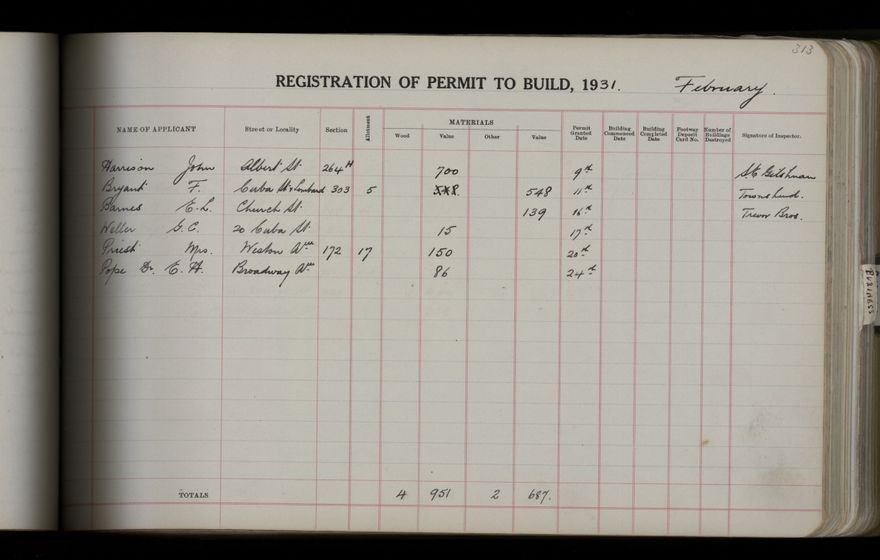 313
REGISTRATION OF PERMIT TO BUILD, 1931. February.
MATERIALS
NAME OF APPLICANT Street or Locality Section Allotment Wood Value Other Value Permit Granted Date Building Commenced Date Building Completed Date Footway Deposit Card No. Number of Buildings Destroyed Signature of Inspector.
Harrison John Albert St. 264H 700 9th
Bryant F. Cuba St & Lombard 303 5 548 11th Townshend.
Barnes E.L. Church St. 139 16th Trevor Bros.
Weller G.C. 20 Cuba St. 15 17th
Priest Mrs. Weston Ave 172 17 150 20th
Pope Dr. E.H. Broadway Ave 86 24th
TOTALS 4 951 2 687.
BUSINESS